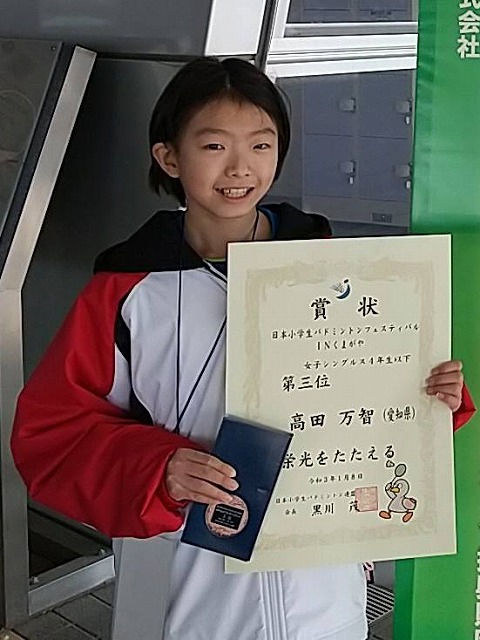 式会社
賞状
日本小学生バドミントンフェスティバル
INくまがや
女子シングルス4年生以下
第三位
高田 万智(愛知県)
栄光をたたえる
令和3年1月8日
日本小学生バドミントン連盟
会長 黒川 茂